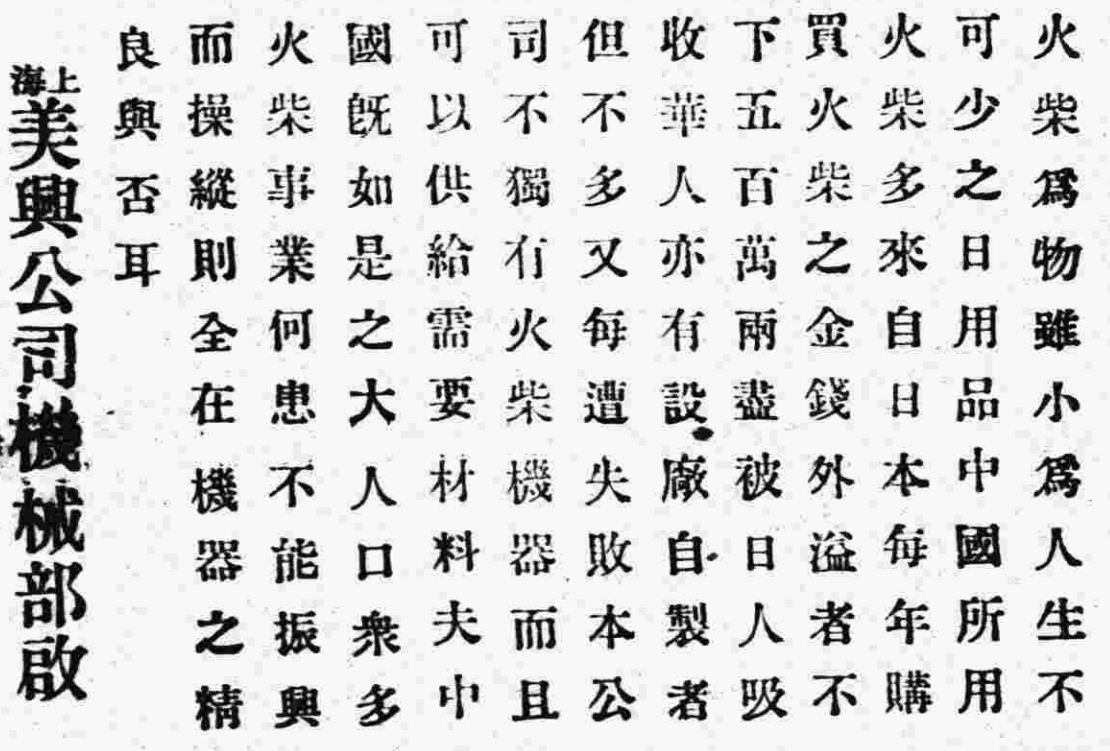 火柴爲物雖小爲人生不
可少之日用品中國所用
火柴多來自日本每年購
買火柴之金錢外溢者不
下五百萬兩盡被日人吸
收華人亦有設廠自製者
但不多又每遭失敗本公
司不獨有火柴機器而且
可以供給需要材料夫中
國旣如是之大人口衆多
火柴事業何患不能振興
而操縱則全在機器之精
良與否耳
上海美興公司機械部啟